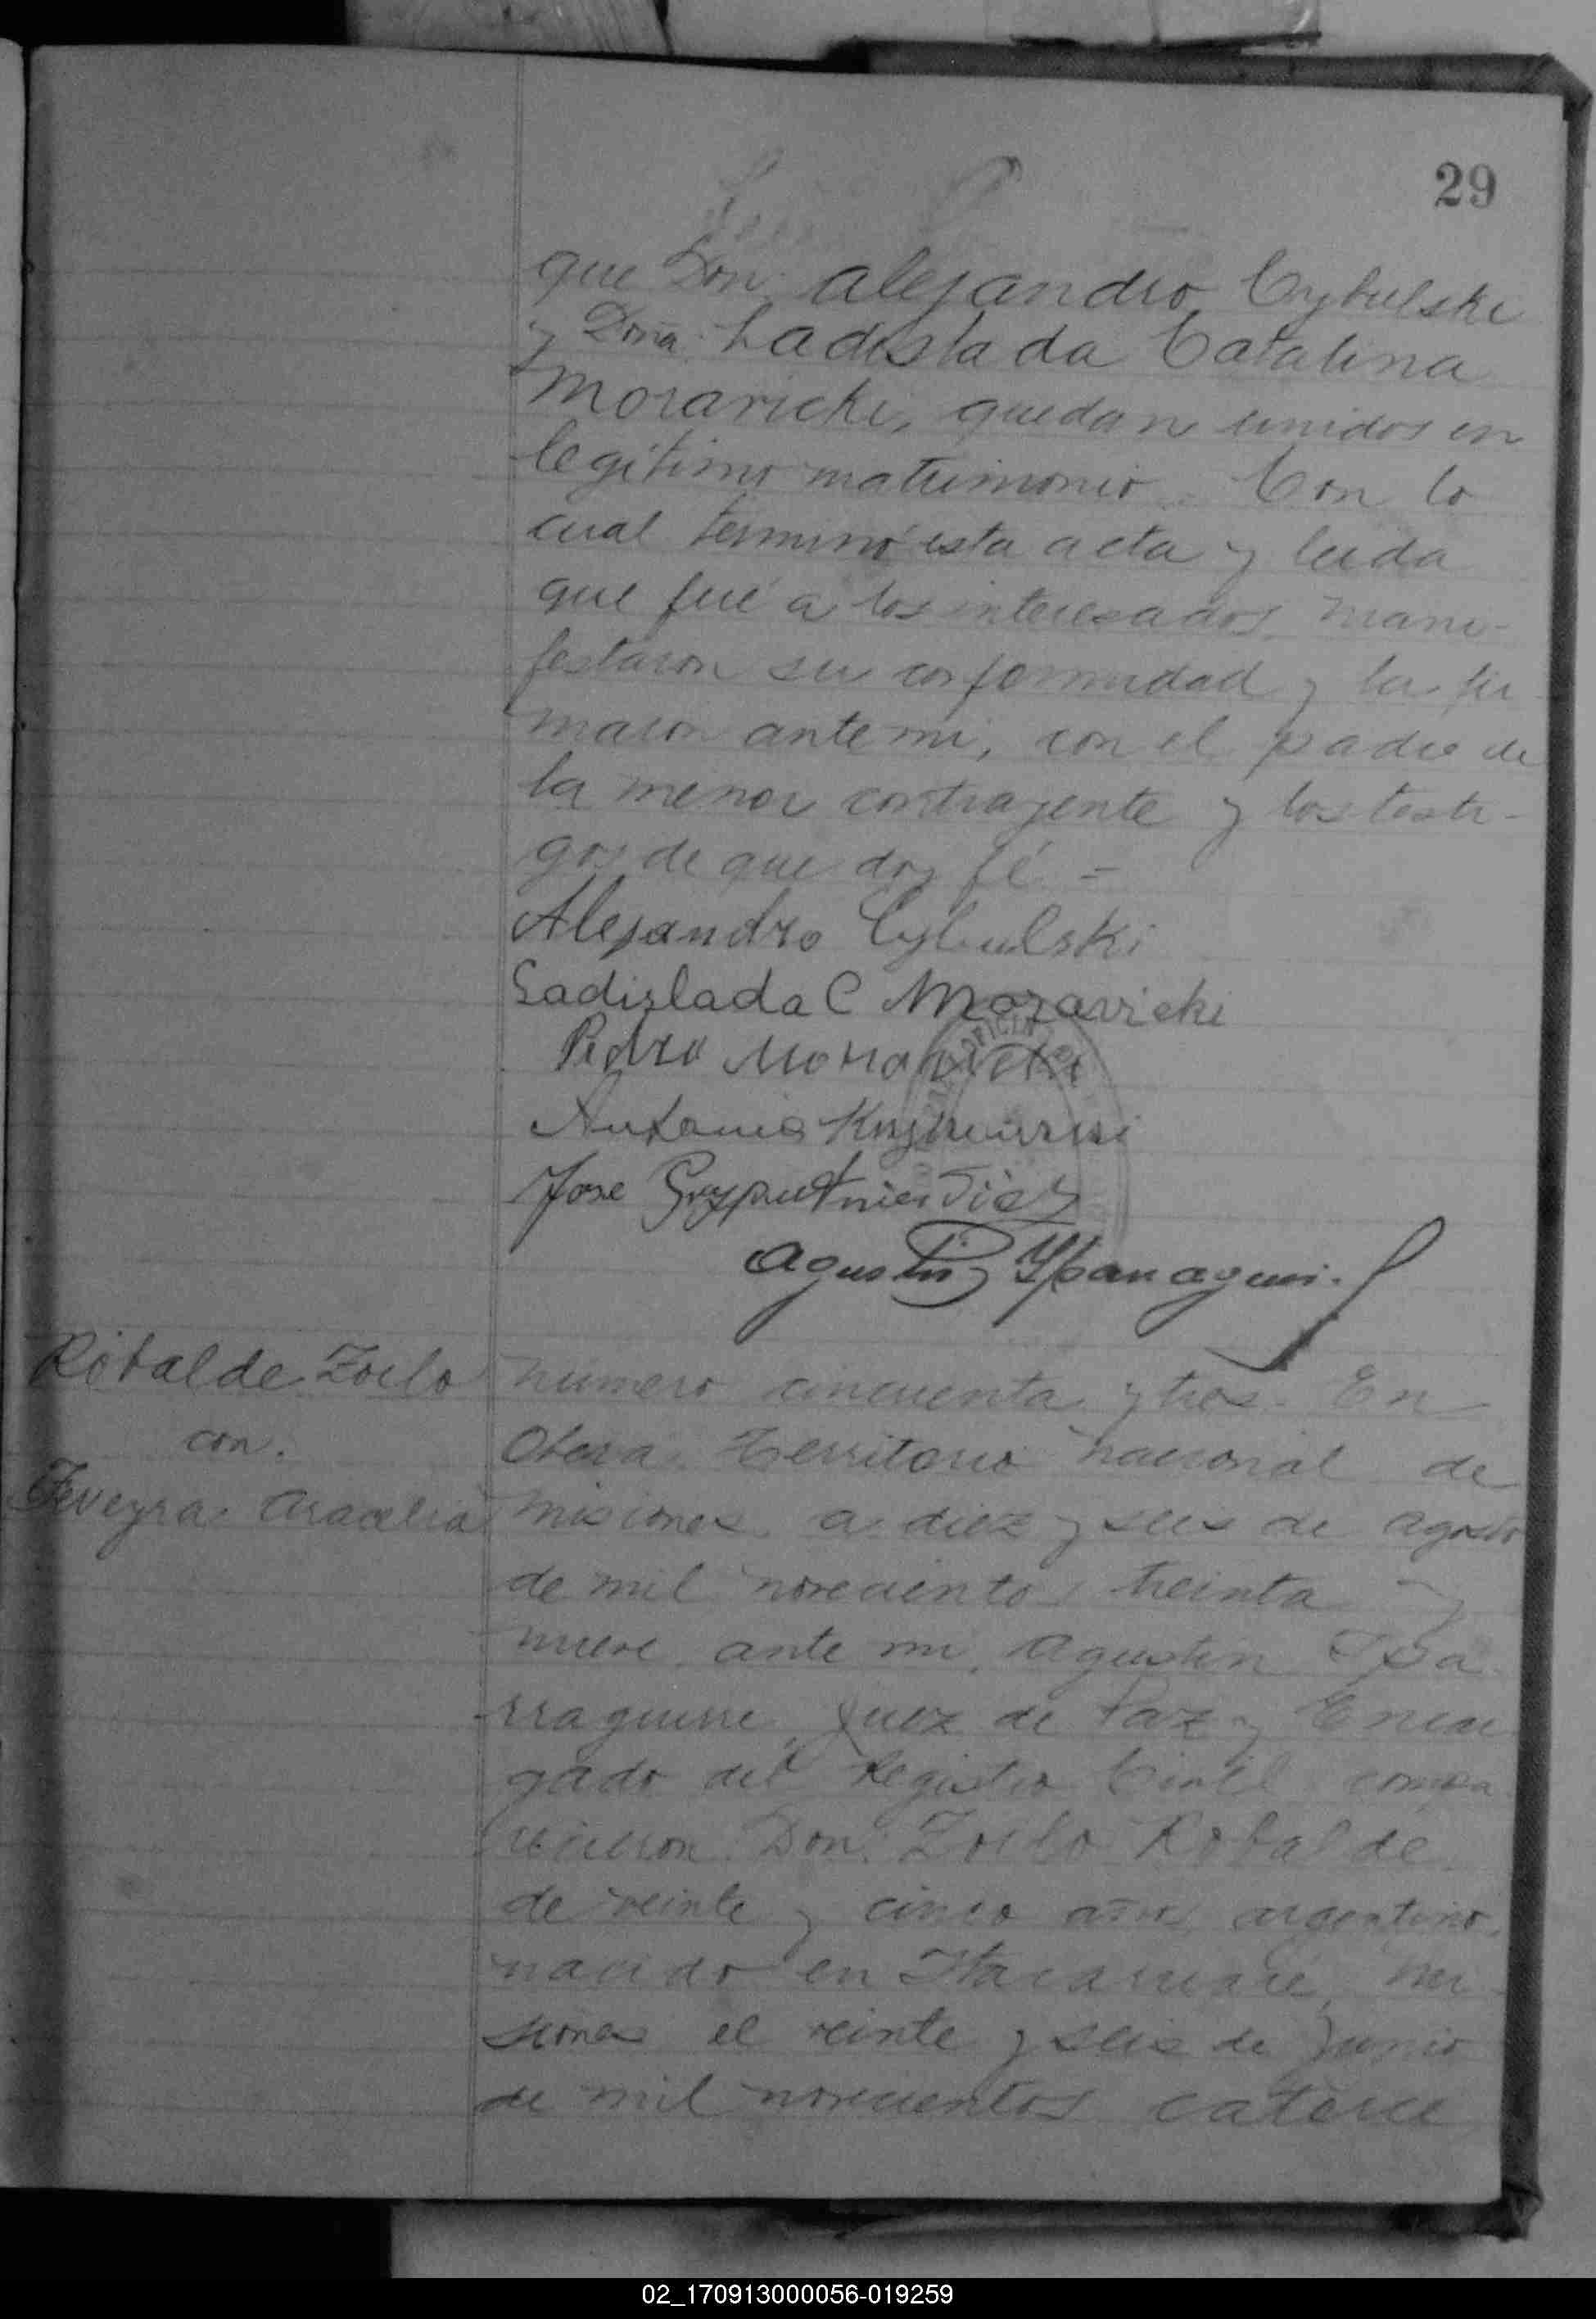 29
que Don Alejandro Cybulski
y Doña Ladislada Catalina
Moravicki, quedan unidos en
legítimo matrimonio. Con lo
cual terminó esta acta y leida
que fué a los interesados, mani-
festaron su conformidad y la fir-
maron ante mi, con el padre de
la menor contrayente y los testi-
gos de que doy fé =
Alejandro Cybulski
Ladislada C Moravicki
Pedro Moravicki
Antonio
Jose
Agustin Yparraguirre
Robalde Zoilo
con.
Feveyra Aracelia
Número cincuenta y tres. En
Obera Territorio Nacional de
Misiones a diez y seis de Agosto
de mil novecientos treinta y
nueve, ante mi, Agustin Ypa
rraguirre, Juez de Paz y Encar
gado del Registro Civil compa
recieron Don: Zoilo Robalde
de veinte y cinco años, argentino,
nacido en Itacaruaré, Mi-
siones el veinte y seis de Junio
de mil novecientos catorce
02_170913000056-019259